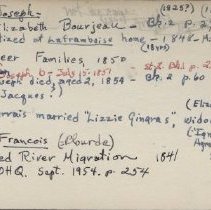 Joseph-
Elizabeth Bourjeau - Bk. 2 p. 2,
tized at Laframboise home - 1848-
(18yrs)
eer Families, 1850
b- July 15-1851 St. L. Bk 1 p.
seph died, aged 2, 1854 - Bk. 2 p. 60
Jacques?)
(Eliz
rrais married "Lizzie Gingras," widow
("Ign
Agr
François (Plourde)
ed River Migration 1841
OHQ. Sept. 1954. p. 254